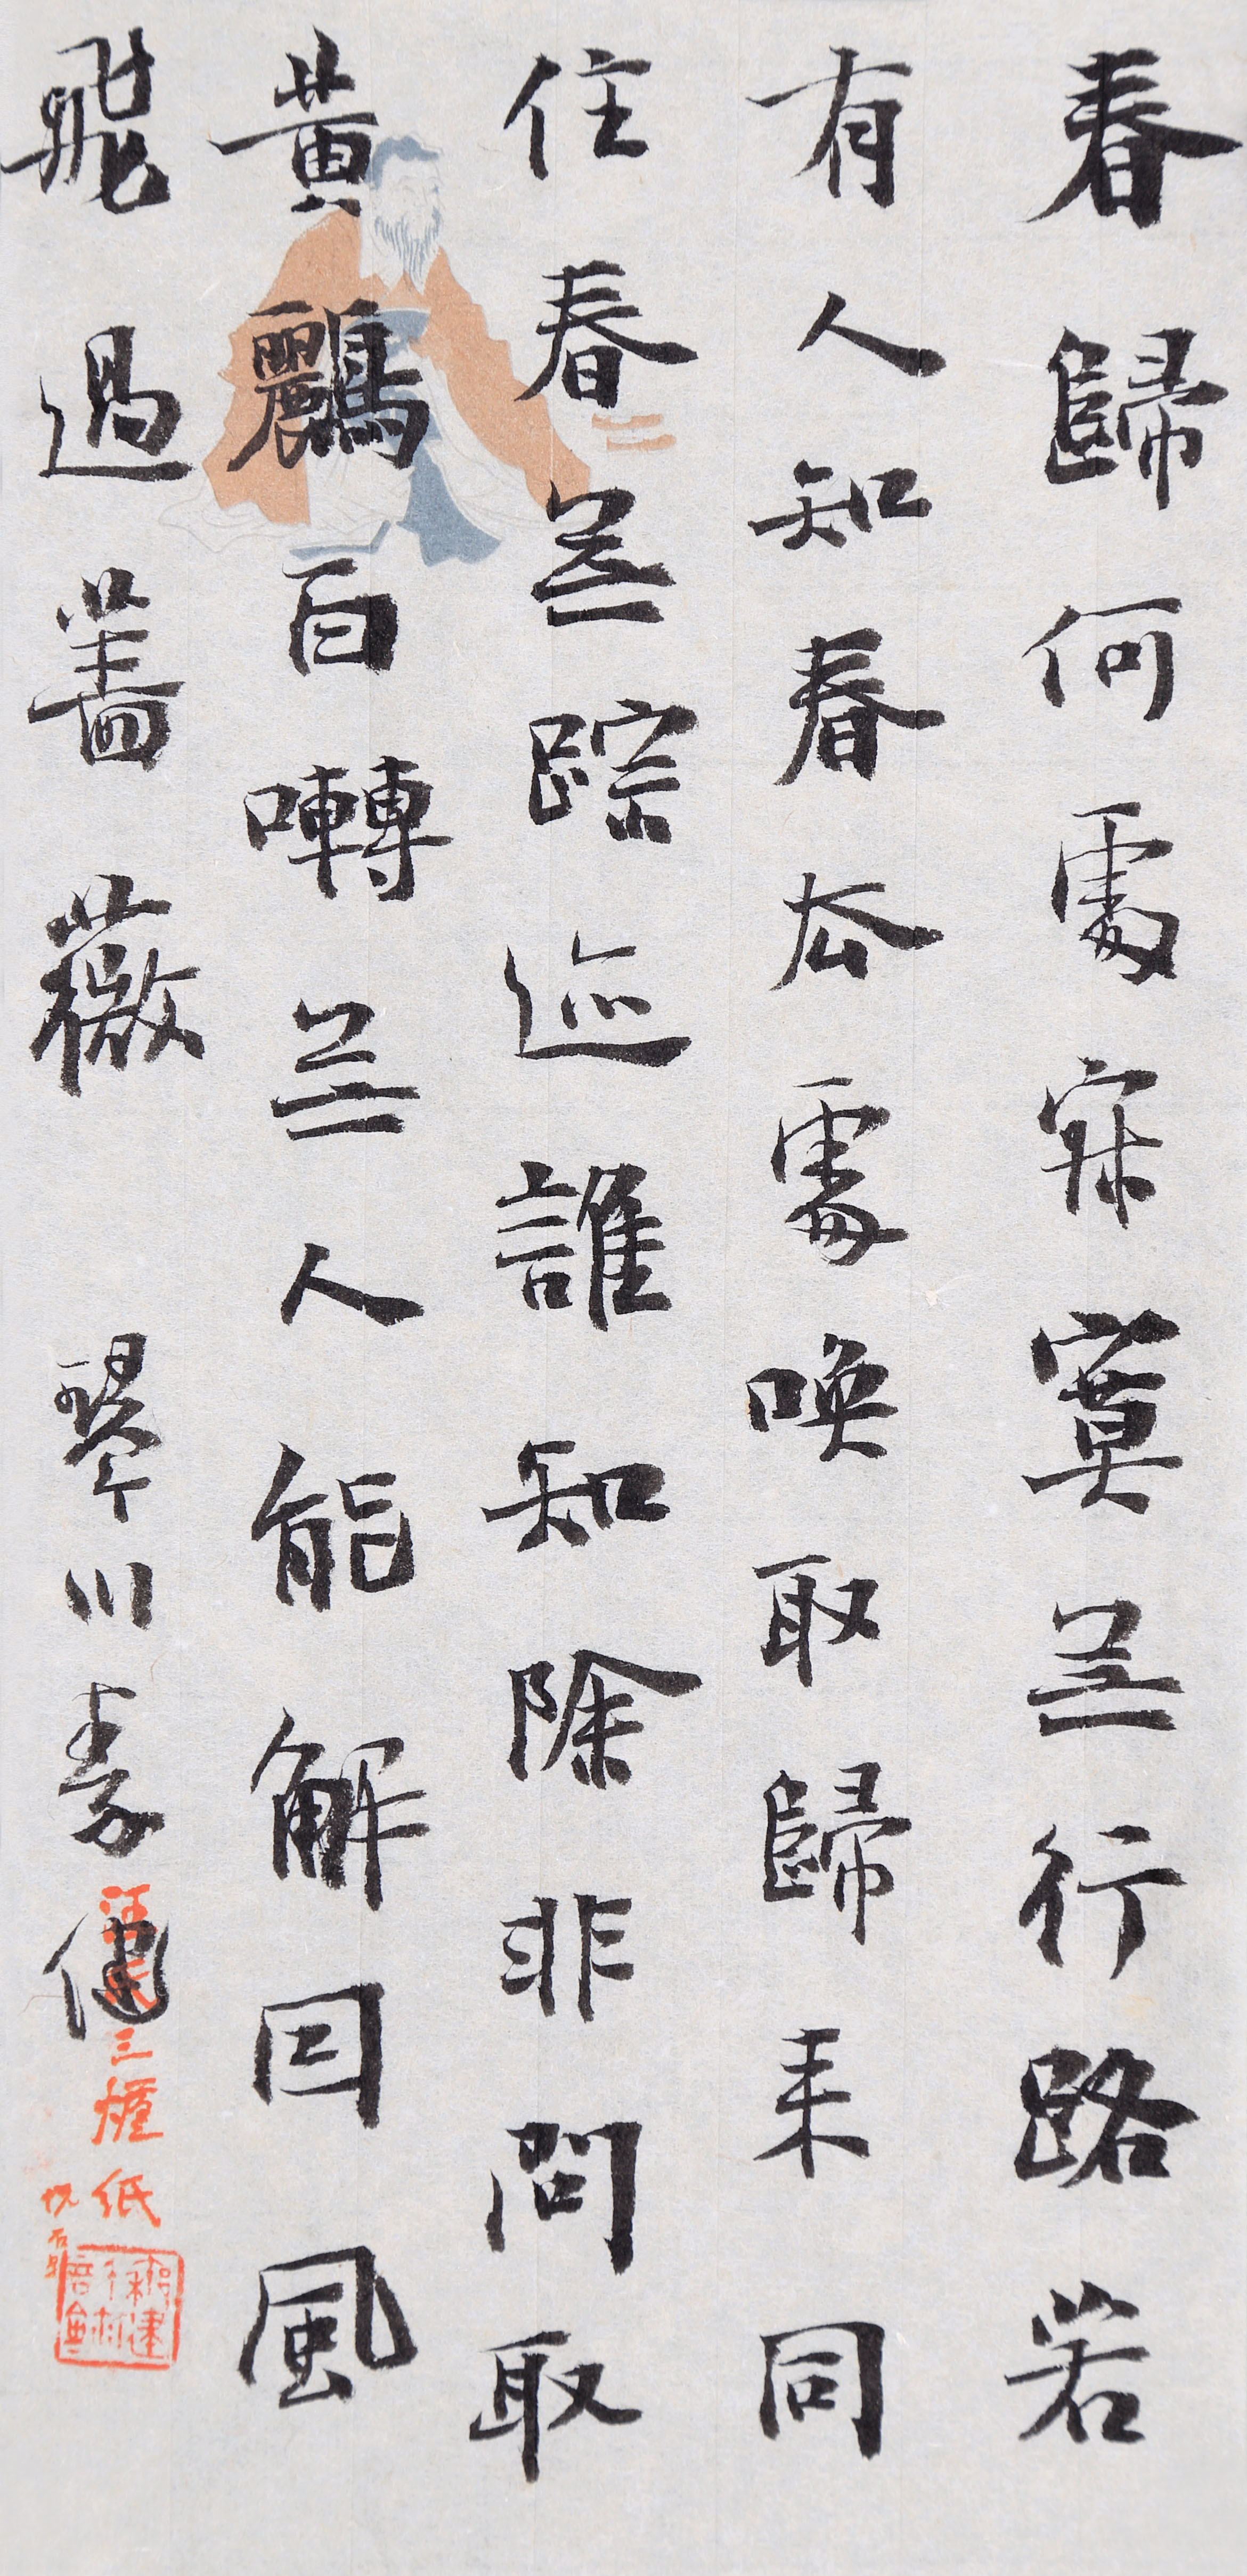 春歸何處寂寞無行路若
有人知春去處喚取歸來同
住春無踪迹誰知除非問取
黃鸝百囀無人能解因風
飛過薔薇 琴川